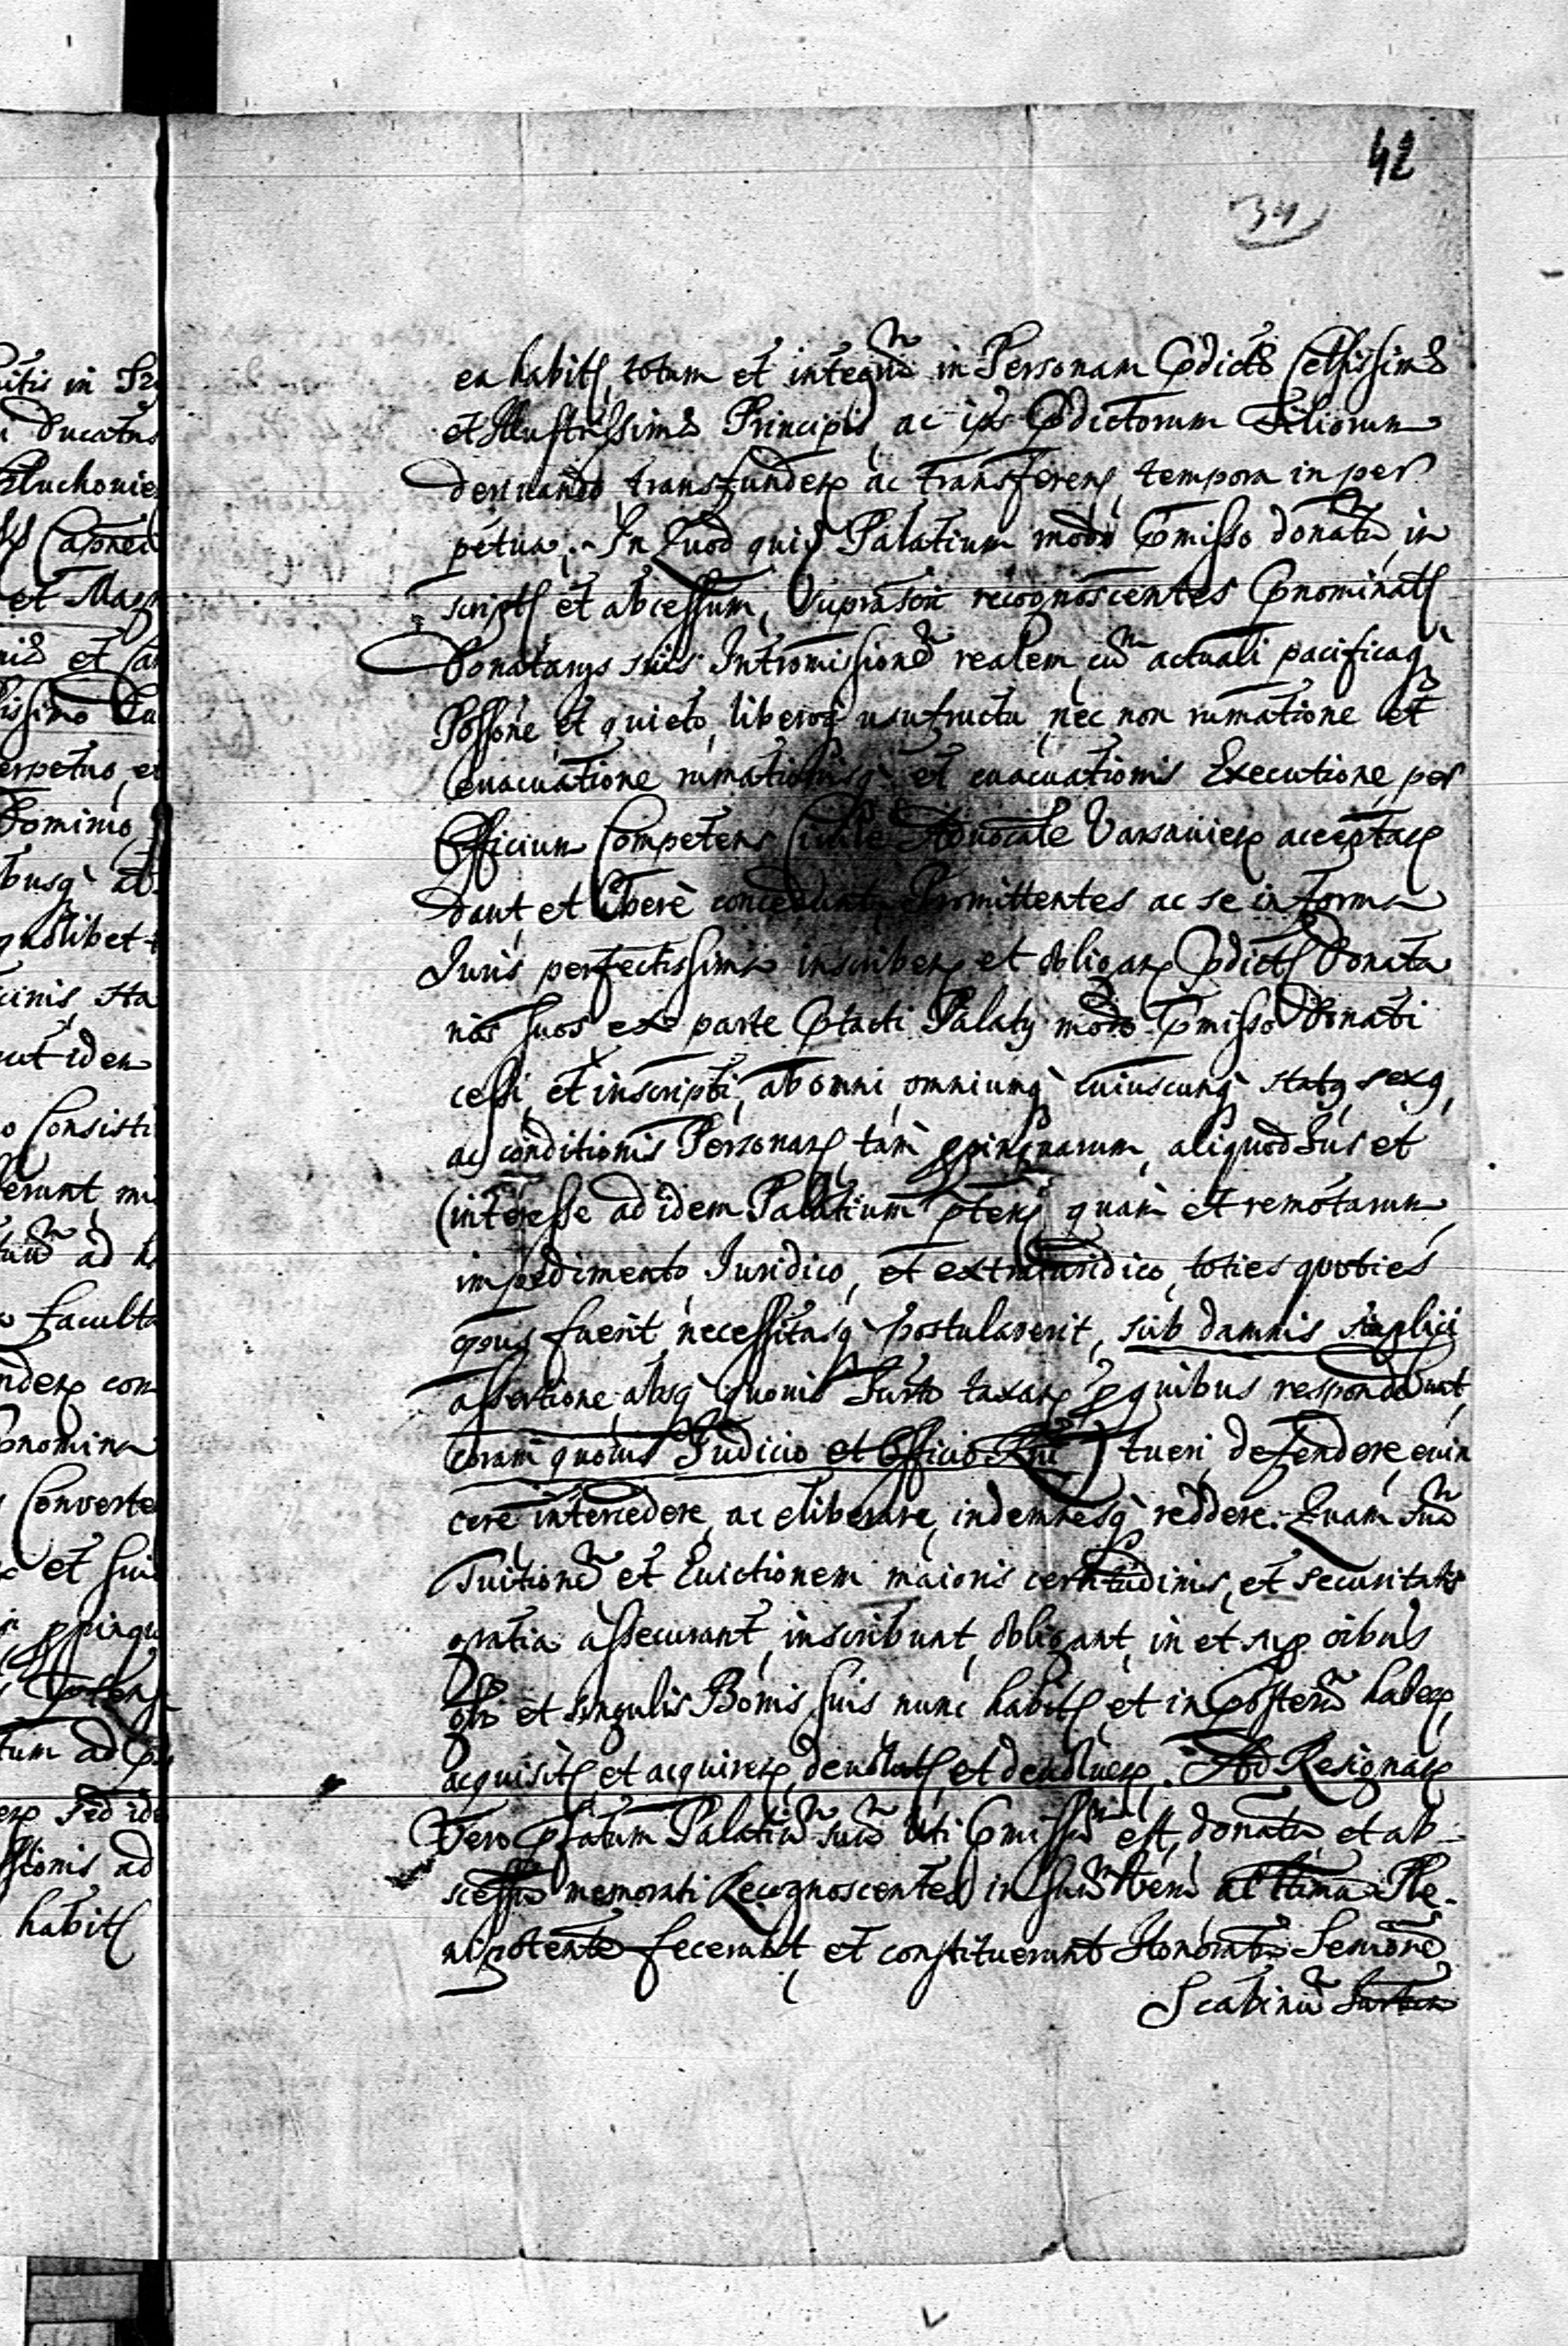 42
34
ea habit totum et integrũ in Personam Pdicti Celsissimi
et Illustrissimi Principis, ac ips Pdictorum Filiorum
deriuando transfunden ac transferen, tempora in per
petua. In quod quid Palatium modo Pmisso donatũ in
script et abcessum, Suprascri recognoscentes Pnominat
Donatarys suis Intromissionẽ realem cũ actuali pacificaq
Possõne et quieto, liberoq usufructu nec non rumatione et
euacuatione rumationisq et euacuationis Executione per
Officium Competens Ciuile Aduocale Varsauien acceptan
dant et liberè concedunt, Promittentes ac se in forma
Iuris perfectissima inscriben et obligan Pdict Donata
rios suos ex parte Ptacti Palaty modo Pmisso Donati
cessi et inscripti, ab omni omniumq cuiuscunq statq sexq
ac conditionis Personar tam ppinquarum, aliquod Ius et
(interesse ad idem Palatium pten quam et remotarum
impedimento Iuridico, et extraiuridico, toties quoties
opus fuerit necessitasq postulauerit, sub damnis simplici
assertione absq quouis Iurto taxan P quibus respondebunt
coram quouis Iudicio et Officio Rni) tueri defendere, euin
cere intercedere, ac eliberare, indemnesq reddere. Quam suã
Tuitionẽ et Euictionem maioris certitudinis, et securitatis
gratia assecurant, inscribunt, obligant, in et sup oibus
et singulis Bonis suis nunc habit et in posterũ haben,
acquisit et acquiren, deuolut, et deuoluen. Ad Resignan
Vero Pfatum Palatiũ suũ uti Pmissũ est, donatũ et ab-
scessũ memorati Recognoscentes in suũ Verũ ac ltimũ Ple-
nipotentẽ fecerunt, et constituerunt Honoratũ Semonẽ
Scabinũ